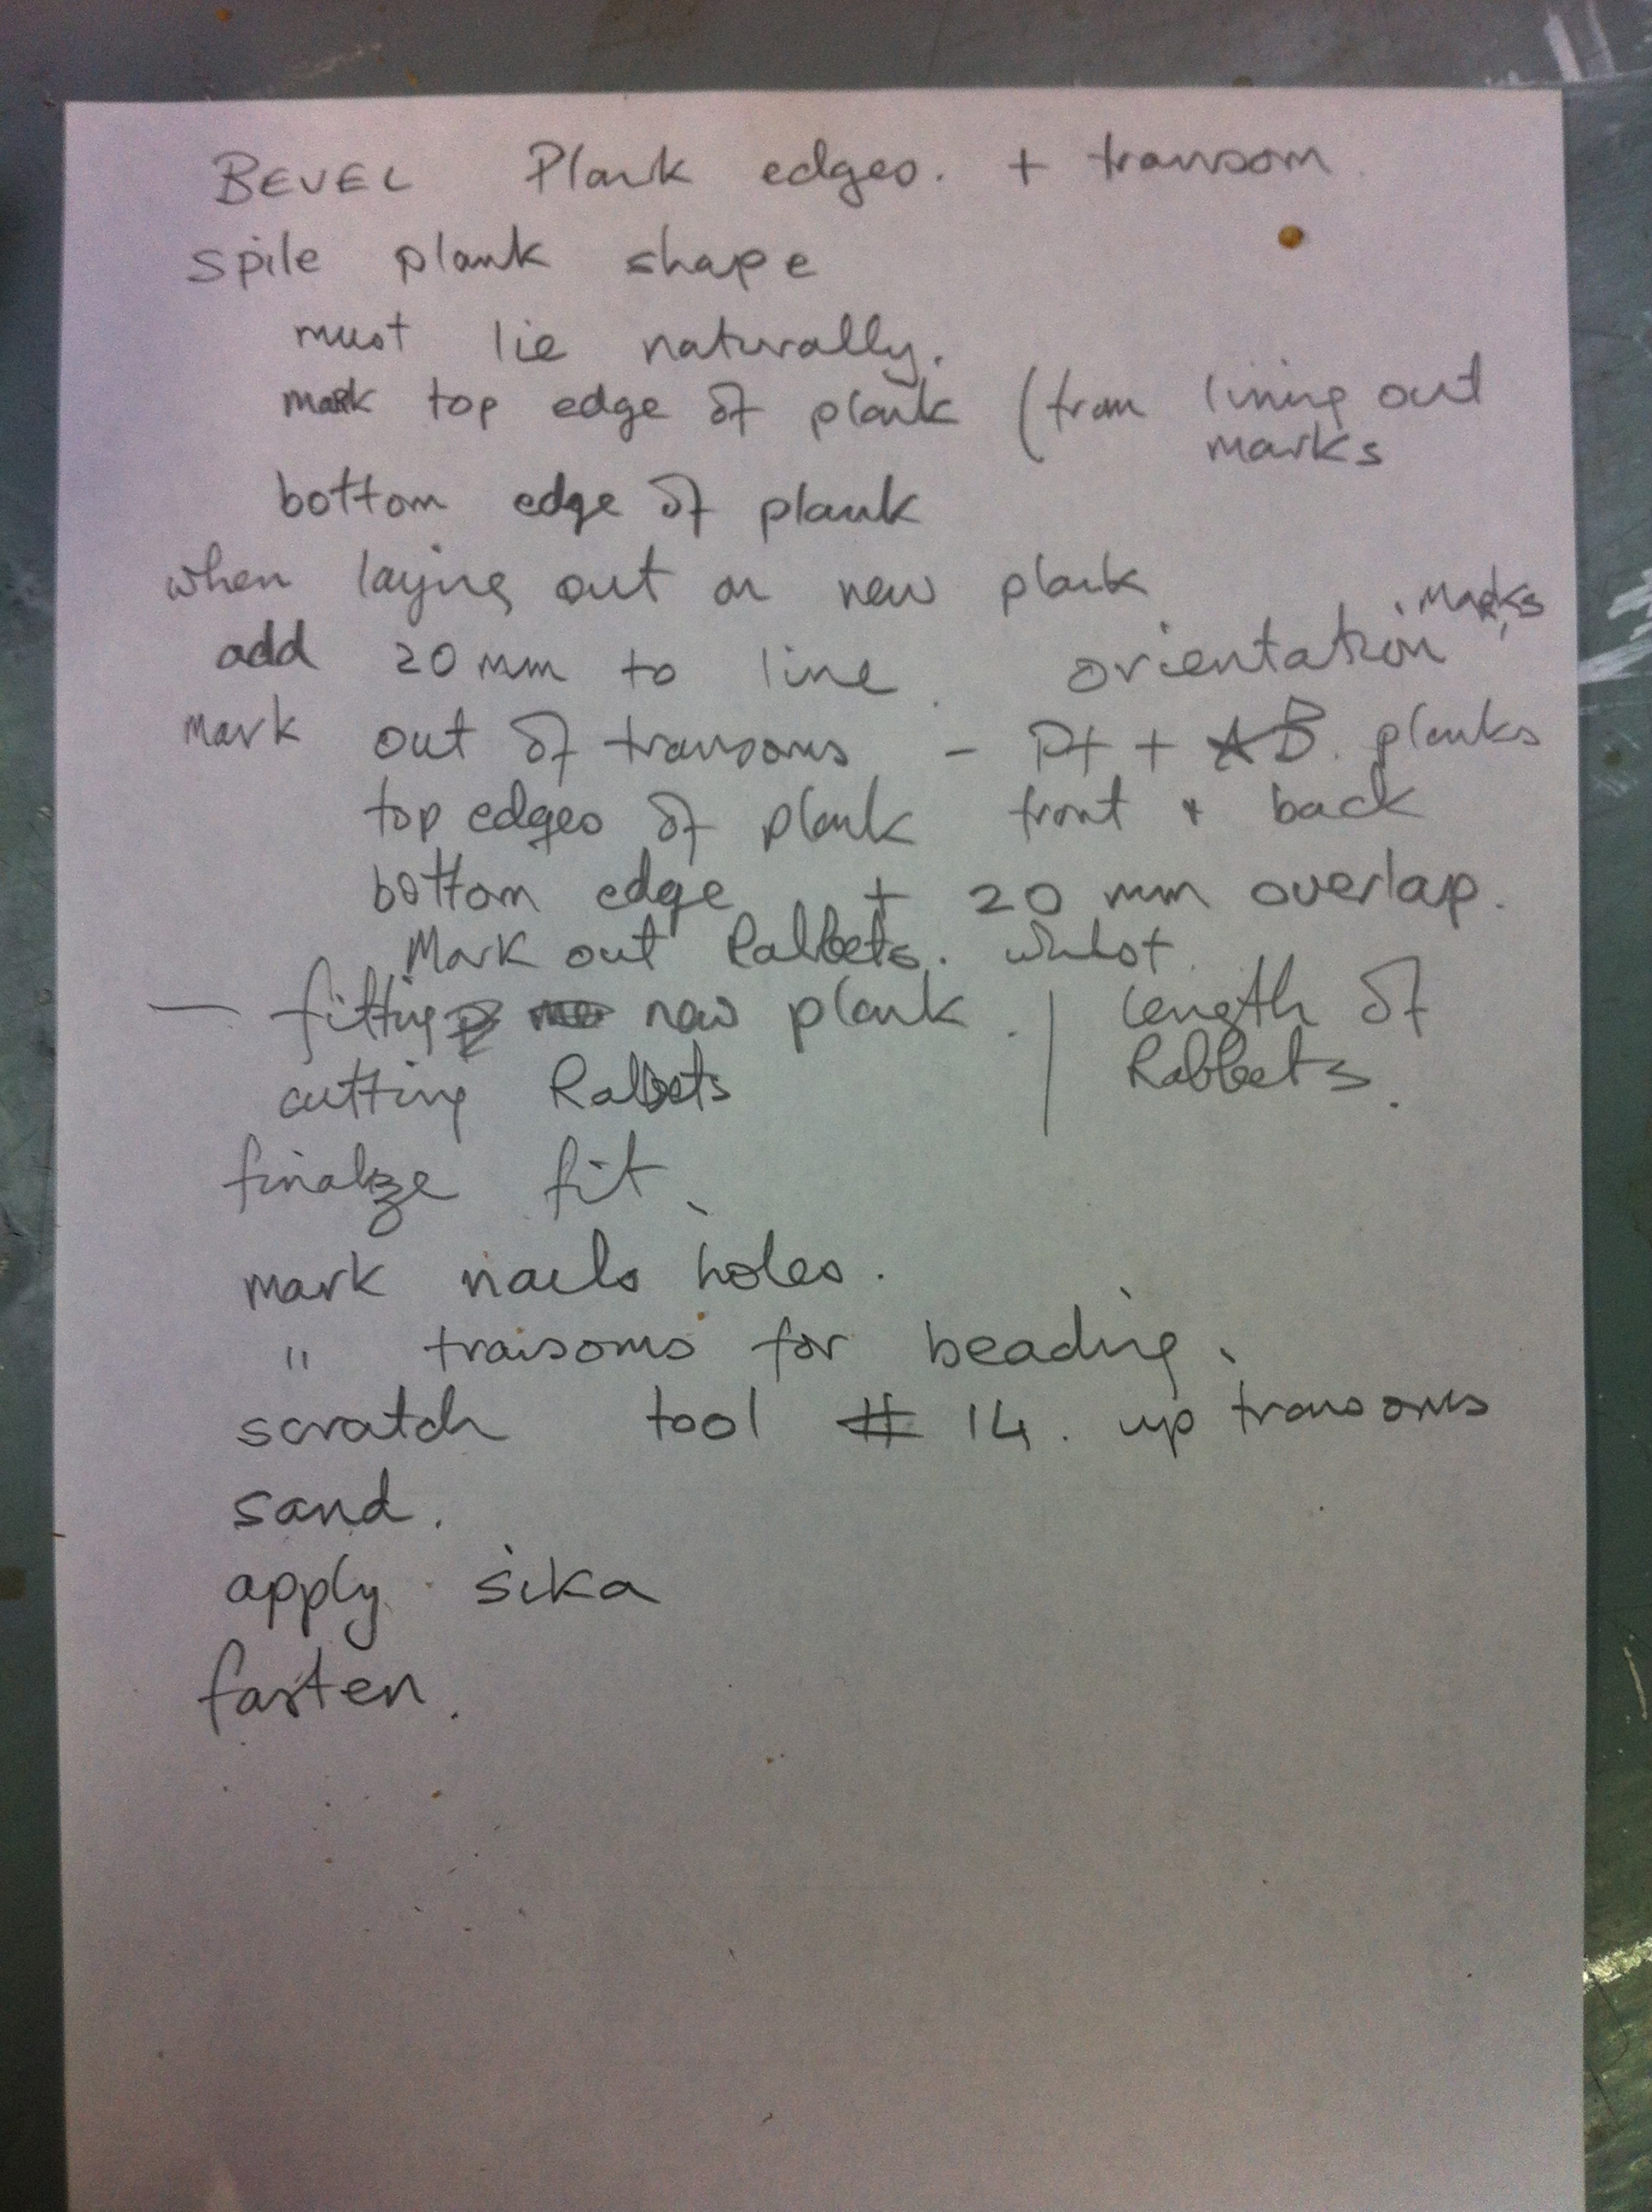 BEVEL Plank edges. + transom
spile plank shape
must lie naturally.
mark top edge of plank (from lining out
marks
bottom edge of plank
when laying out on new plank
add 20 mm to line. orientation marks
mark out of transoms - Pt + B. planks
top edges of plank front + back
bottom edge + 20 mm overlap.
Mark out Rabbets. whilst
- fitting new plank. | length of
cutting Rabbets | Rabbets.
finalize fit.
mark nails holes.
" transoms for beading.
scratch tool # 14. up transoms
sand.
apply sika
fasten.